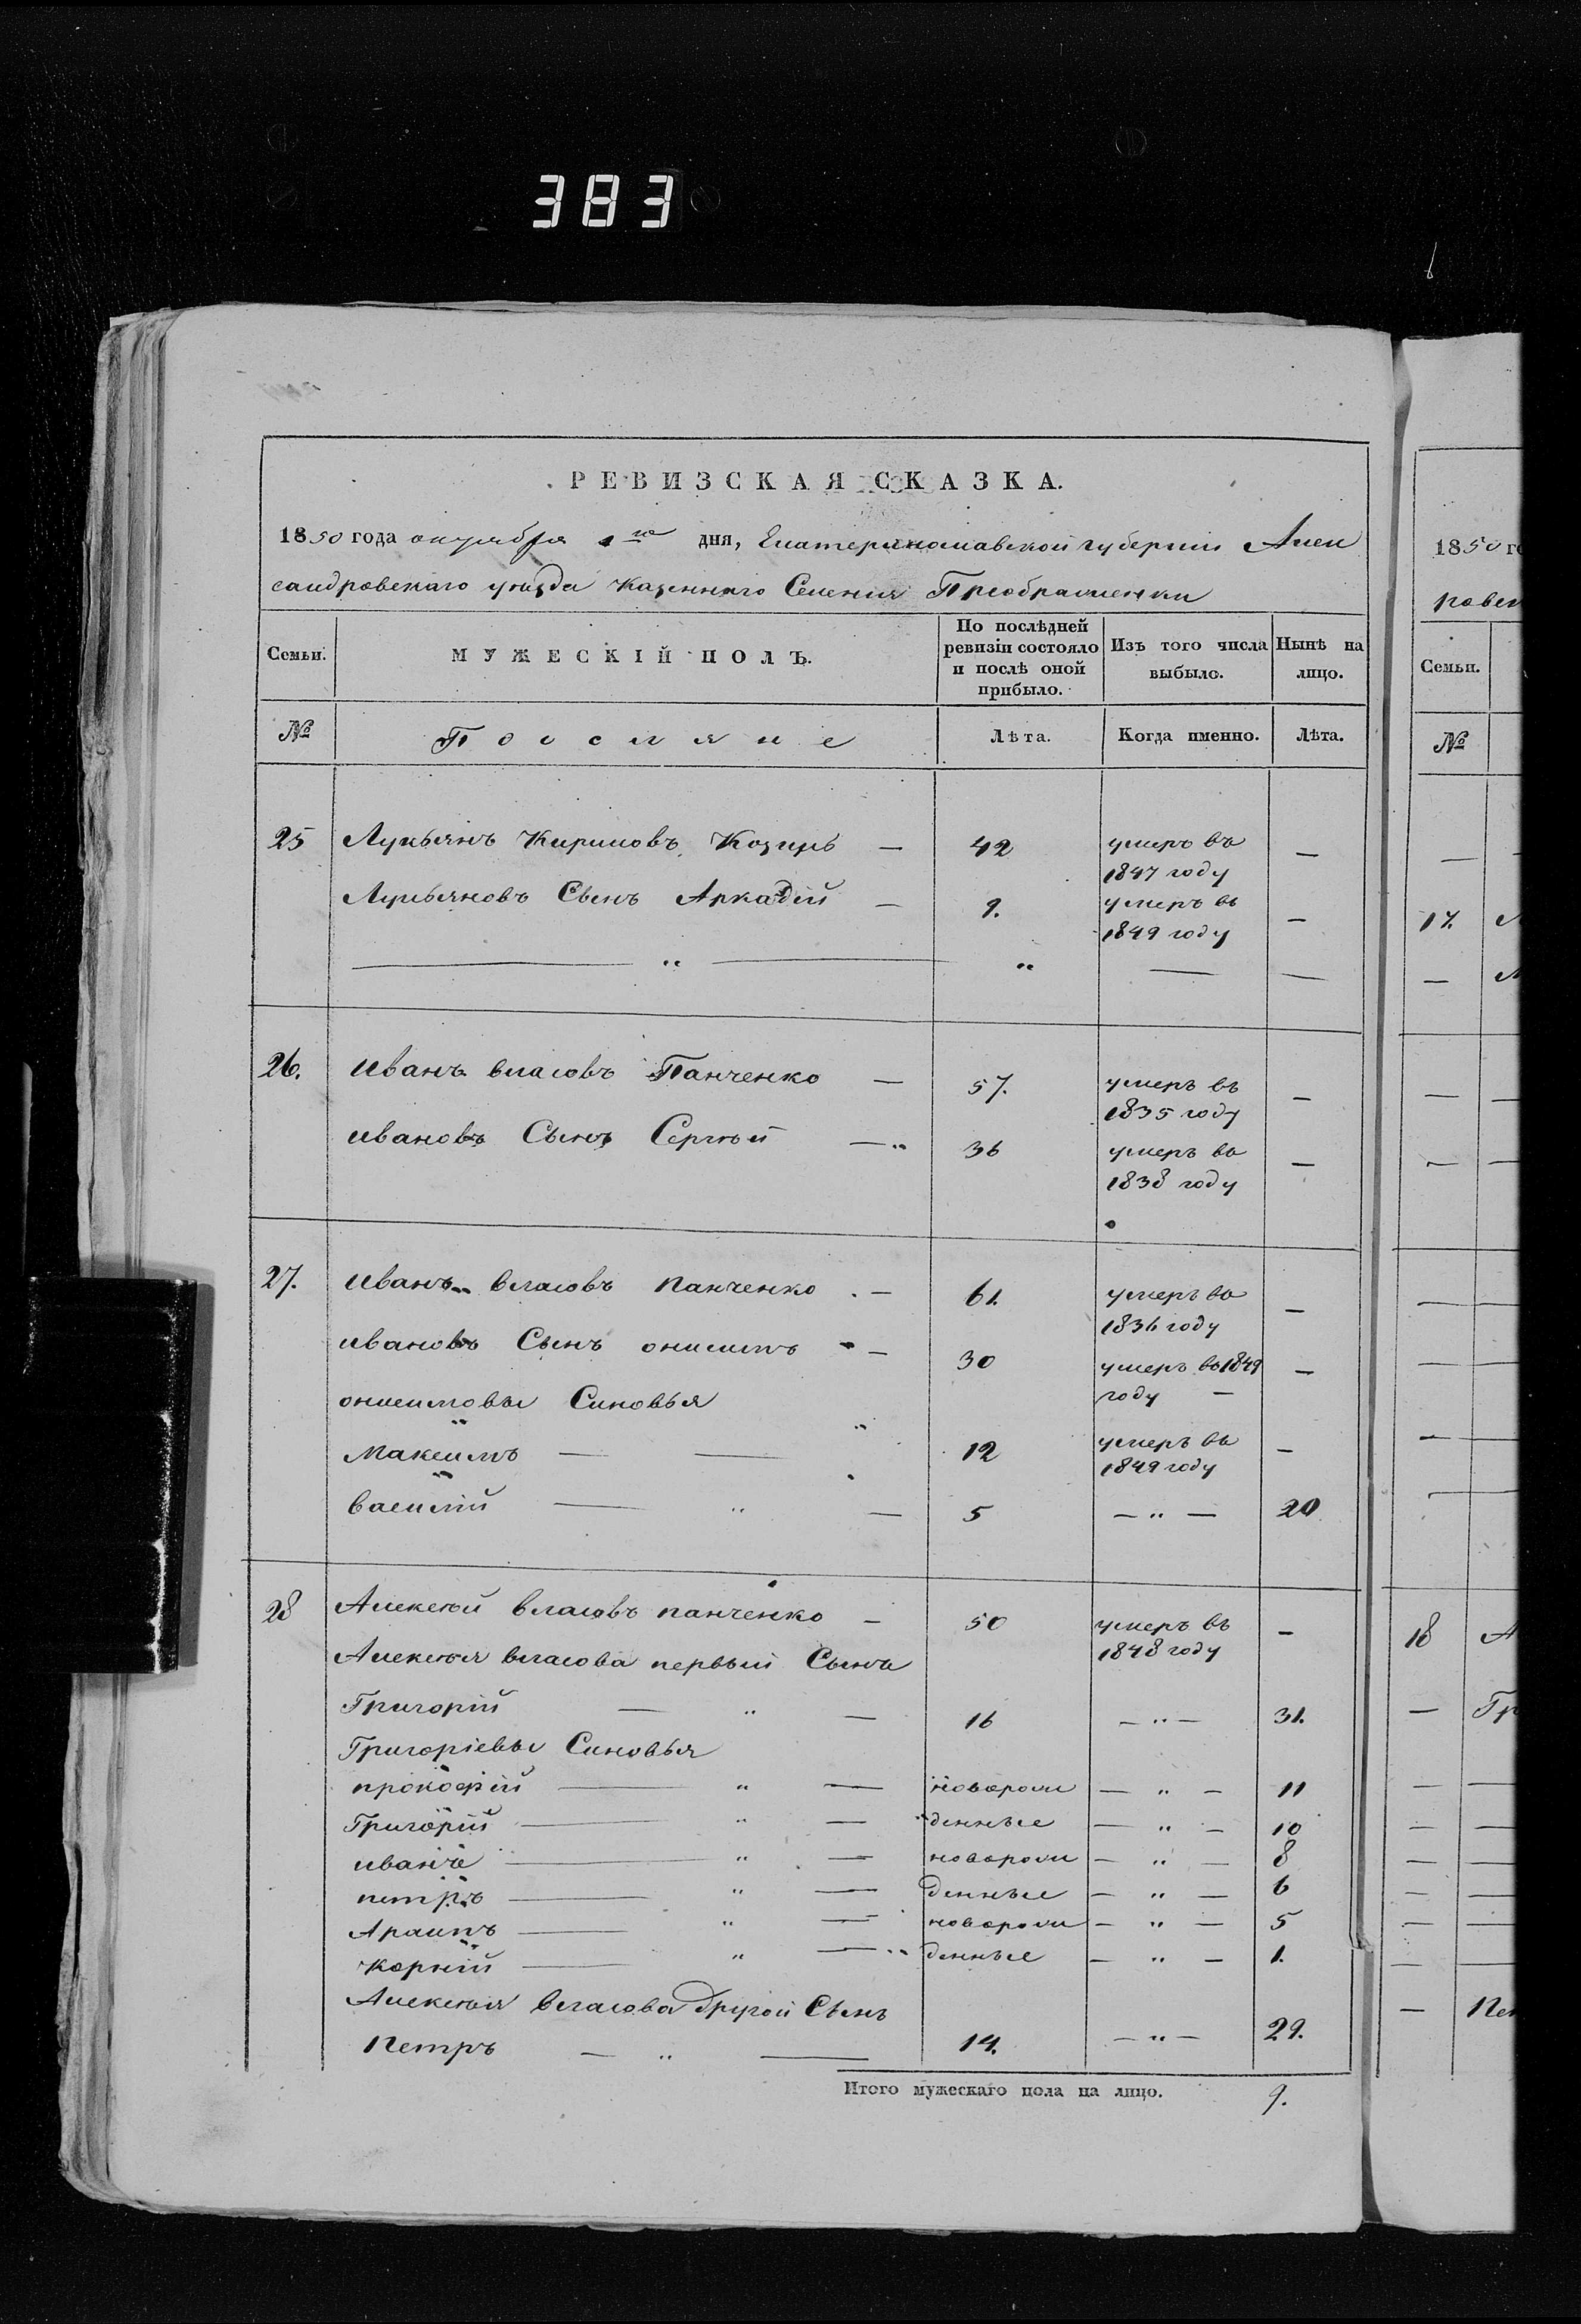 383
РЕВИЗСКАЯ СКАЗКА.
1850 года октября 1го дня, Екатеринославской губернии Алек
сандровскаго уѣзда Казеннаго Селения Преображенки
Семьи.
МУЖЕСКІЙ ПОЛЪ.
По послѣдней ревизіи состояло и послѣ оной прибыло.
Изъ того числа выбыло.
Нынѣ на лицо.
№ Поселяне Лѣта. Когда именно. Лѣта.
25 Лукьянъ Кириловъ Козирь — 42 умеръ въ 1847 году —
Лукьяновъ Сынъ Аркадій — 9. умеръ въ 1849 году —
— „ — „ — —
26. Иванъ власовъ Панченко — 57. умеръ въ 1835 году —
ивановъ Сынъ Сергѣй — „ 36 умеръ въ 1838 году —
27. Иванъ власовъ Панченко — 61. умеръ въ 1836 году —
ивановъ Сынъ онисимъ — 30 умеръ въ 1849 году —
онисимовы Синовья
Максимъ — — 12 умеръ въ 1849 году —
василій — „ — 5 — „ — 20
28 Алексѣй власовъ панченко — 50 умеръ въ 1848 году —
Алексѣя власова первый Сынъ
Григорій — „ — 16 — „ — 31.
Григоріевы Синовья
прокофій — „ — новорож — „ — 11
Григорій — „ — денные — „ — 10
иванъ — „ — новорож — „ — 8
петръ — „ — денные — „ — 6
— „ — новорож — „ — 5
Корній — „ — денные — „ — 1.
Алексѣя власова другой Сынъ
Петръ — „ — 14. — „ — 29.
Итого мужескаго пола на лицо. 9.
1850 го
ровск
Семьи.
№
17.
18 А
— Гр
— Пет